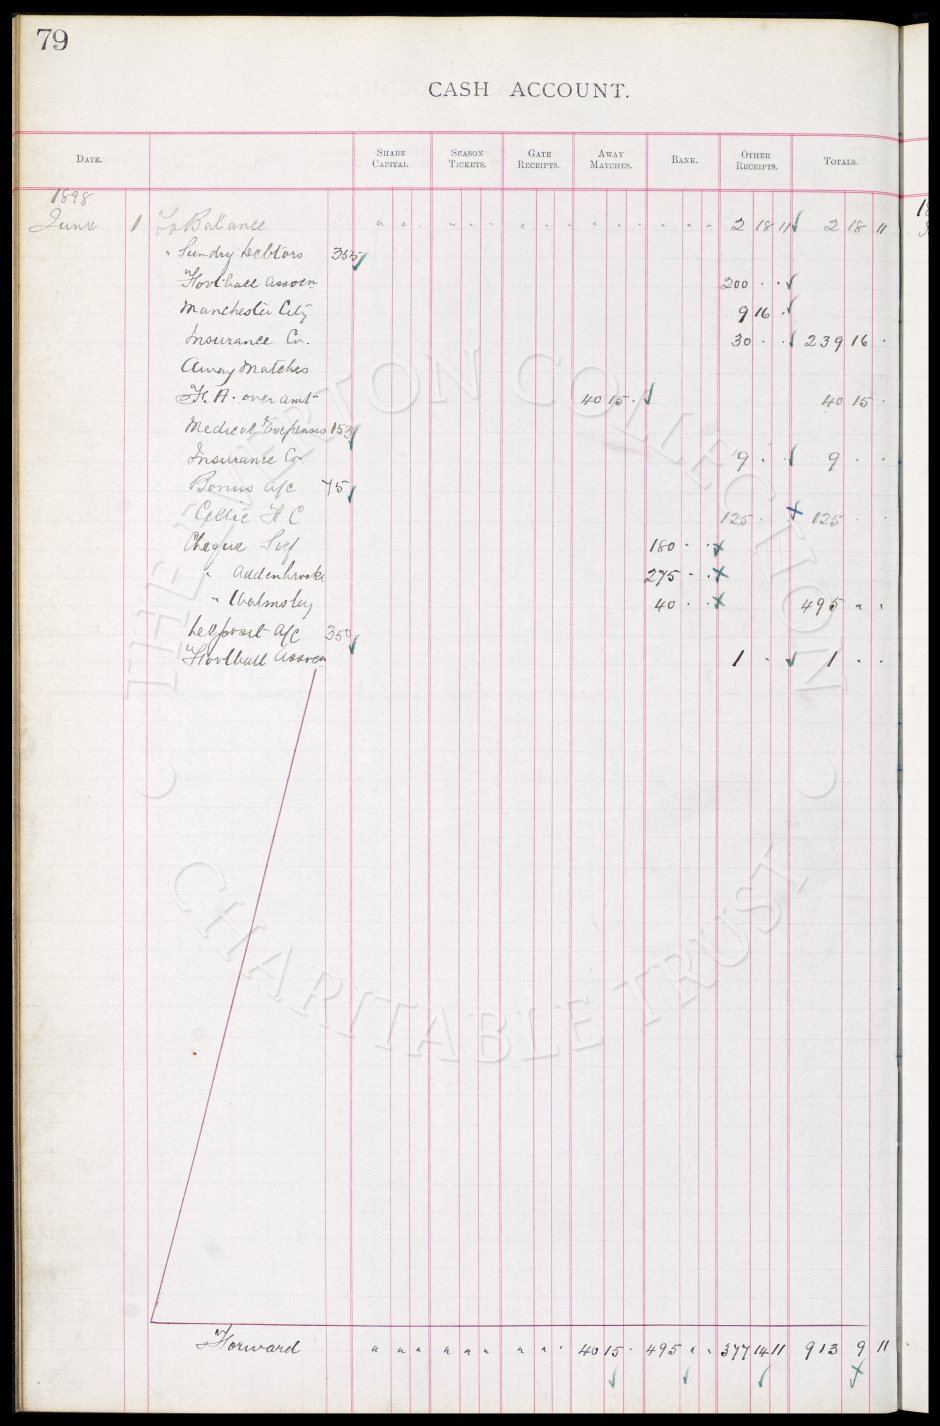 79
CASH ACCOUNT.
DATE. SHARE CAPITAL. SEASON TICKETS. GATE RECEIPTS. AWAY MATCHES. BANK. OTHER RECEIPTS. TOTALS.
1898
June 1 To Balance " " . " . . " . . " . . " . . 2 18 11 2 18 11
" Sundry Debtors 355
Football Assocn 200 . .
Manchester City 9 16 .
Insurance Co. 30 . . 239 16 .
Away Matches
F. A. over amt 40 15 . 40 15 .
Medical Expenses 153
Insurance Co 9 . . 9 . .
Bonus a/c 75
Celtic F C 125 . . 125 . .
Cheque Self 180 . .
" Addenbrooke 275 . .
" Walmsley 40 . . 495 " "
Deposit a/c 350
Football Assocn 1 . . 1 . .
Forward " " " " " " " " . 40 15 . 495 " . 377 14 11 913 9 11
THE EVERTON COLLECTION
CHARITABLE TRUST